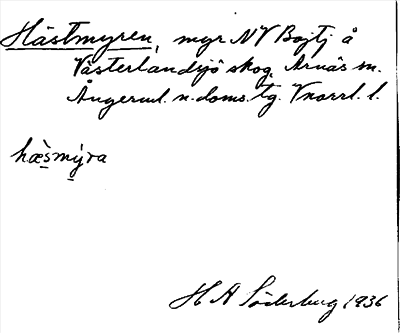 Hästmyren, myr NV Bojtj. å
Västerlandsjö skog, Arnäs sn.
Ångerml. n. doms. tg. Vnorrl. l.
hæ̀smýra
H A Söderberg 1936